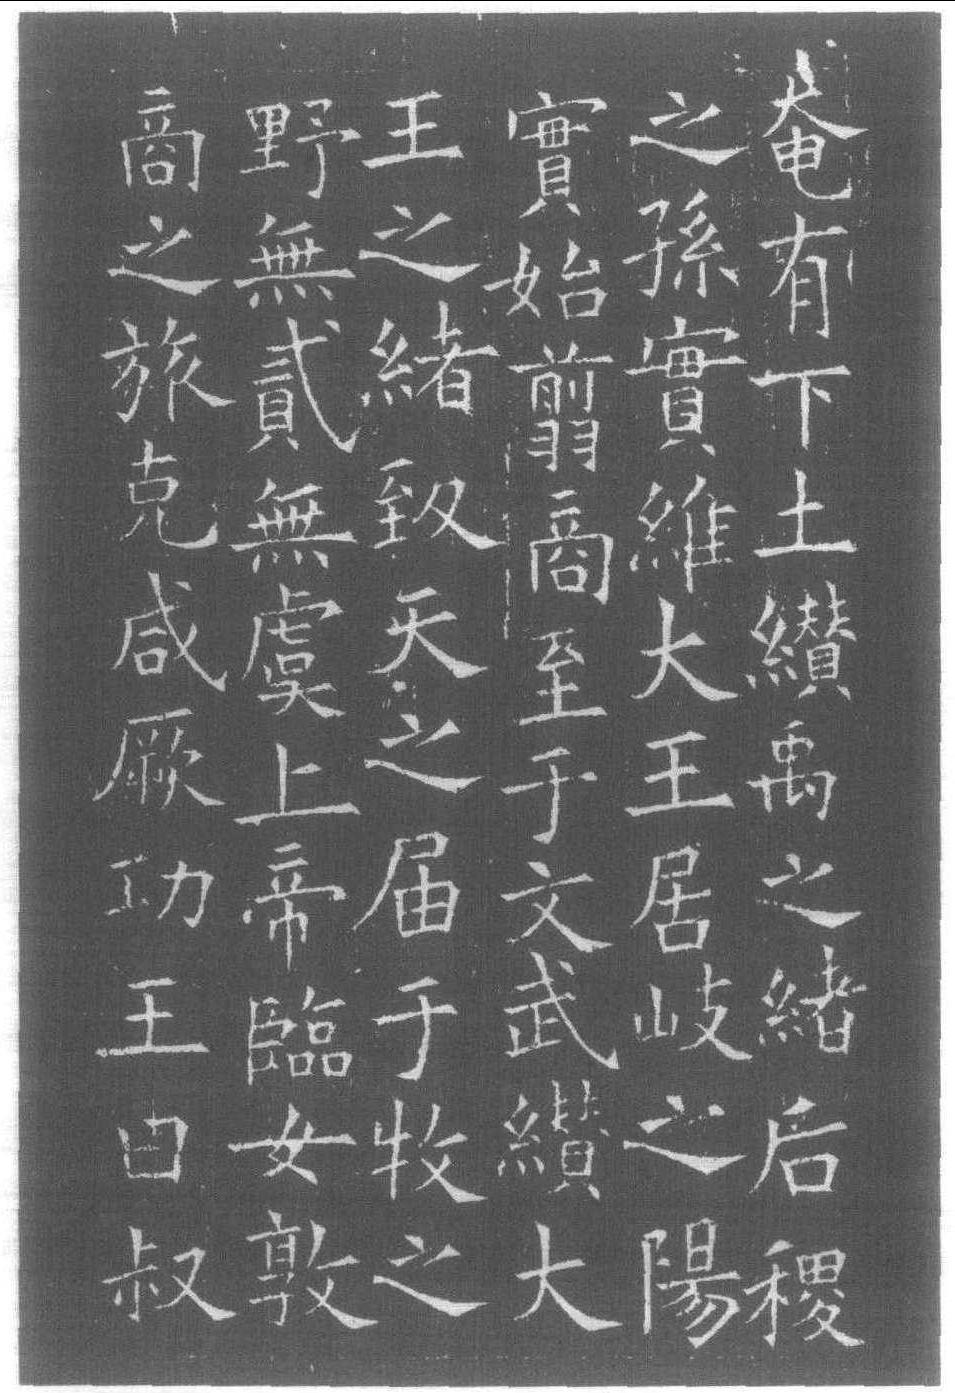 奄有下土纘禹之緒后稷
之孫實維大王居岐之陽
實始翦商至于文武纘大
王之緒致天之届于牧之
野無貳無虞上帝臨女敦
商之旅克咸厥功王曰叔